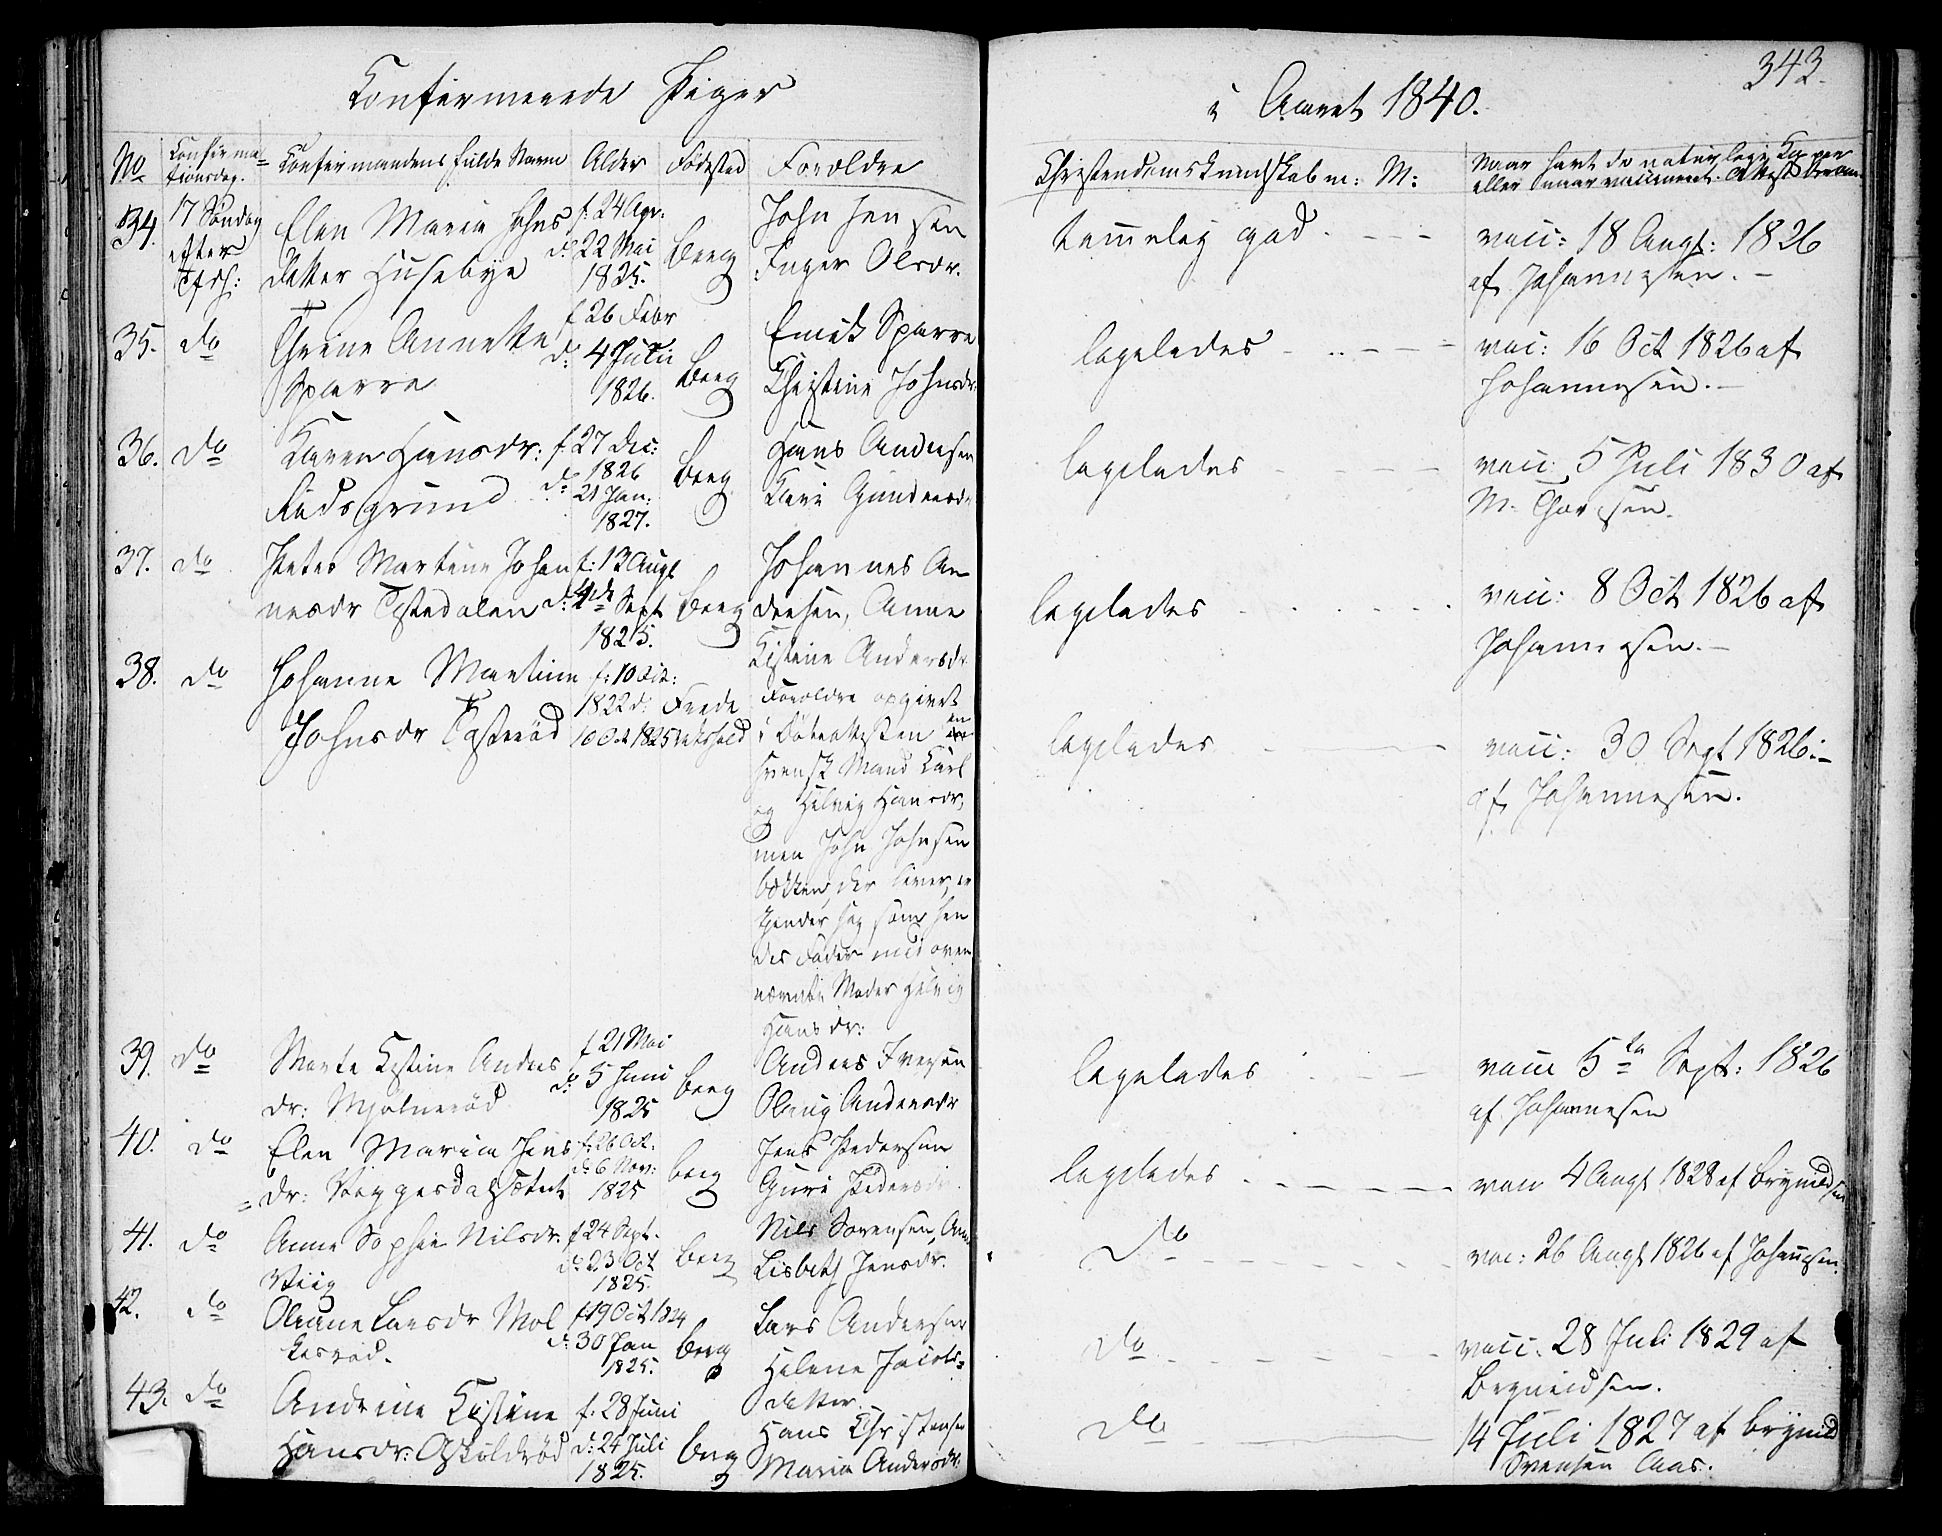 Confirmerede Piger
i Aaret 1840.
343.
No
Confirma=
tionsdag.
Confirmandens fulde Navn
Alder
Fødested
Forældre
Christendomskundskab m: M:
Naar havt de naturlige Kopper
eller naar vaccineret.
34.
17 Søndag
efter
Elen Maria Johns
datter Husebye
f. 24 Apr:
d: 22 Mai
1825.
Berg
John Jensen
Inger Olsdr.
temmelig god.
vacc: 18 Augt: 1826
af Johannesen.
35.
do
Thrine Annette
Sparre
f 26 Febr
d: 4 Juni
1826.
Berg
Sparre
Christine Johnsdr.
ligeledes
vac: 16 Oct 1826 af
Johannesen.
36.
do
Karen Hansdr:
f. 27 Dec:
1826
d: 21 Jan:
1827.
Berg
Hans Andersen
Kari Gundersdr
ligeledes
vacc. 5 Juli 1830 af
M. Thoresen.
37.
do
Martine Johan
nesdr
f: 13 Augt
d: 4de Sept
1825.
Berg
Johannes An
dersen, Anne
Kistine Andersdr.
ligeledes
vacc: 8 Oct 1826 af
Johannesen.
38.
do
Johanne Martine
Johnsdr
f: 10 Oct:
1822 d:
10 Oct 1825
Frede
rikshald
Forældre opgivet
i Døbeattesten en
svensk Mand Carl
og Helvig Hansdr,
men John Johnsen
der lever, er
kjender sig som hen
des Fader med oven
nævnte Moder Helvig
Hansdr:
ligeledes
vacc: 30 Sept 1826.
af Johannesen.
39.
do
Marte Kistine Andres
dr: Mjølnerød
f 21 Mai
d: 5 Juni
1825
Berg
Anders Iversen
Olaug Andersdr
ligeledes
vacc 5te Sept: 1826
af Johannesen
40.
do
Elen Maria Jens
dr:
f. 26 Oct.
d: 6 Nov:
1825
berg
Jens Pedersen
Guri Pedersdr.
ligeledes
vacc 4 Augt 1828 af Brynildsen
41.
do
Anne Sophie Nilsdr.
Viig
f 24 Sept.
d: 23 Oct
1825.
Berg
Nils Sørensen, Anne
Lisbeth Jensdr.
do
vac: 26 Augt 1826 af Johannesen.
42.
do
Oleane Larsdr Mol
kerød.
f 19 Oct 1824
d: 30 Jan
1825.
Berg
Lars Andersen
Helene Jacobs=
datter.
do
vacc. 28 Juli 1829 af
Brynildsen.
43.
do
Andrine Kistine
Hansdr: Askildrød
f. 28 Juni
d: 24 Juli
1825.
berg
Hans Christensen
Maria Andersdr.
do
14 Juli 1827 af Brynild
Svensen Aas.